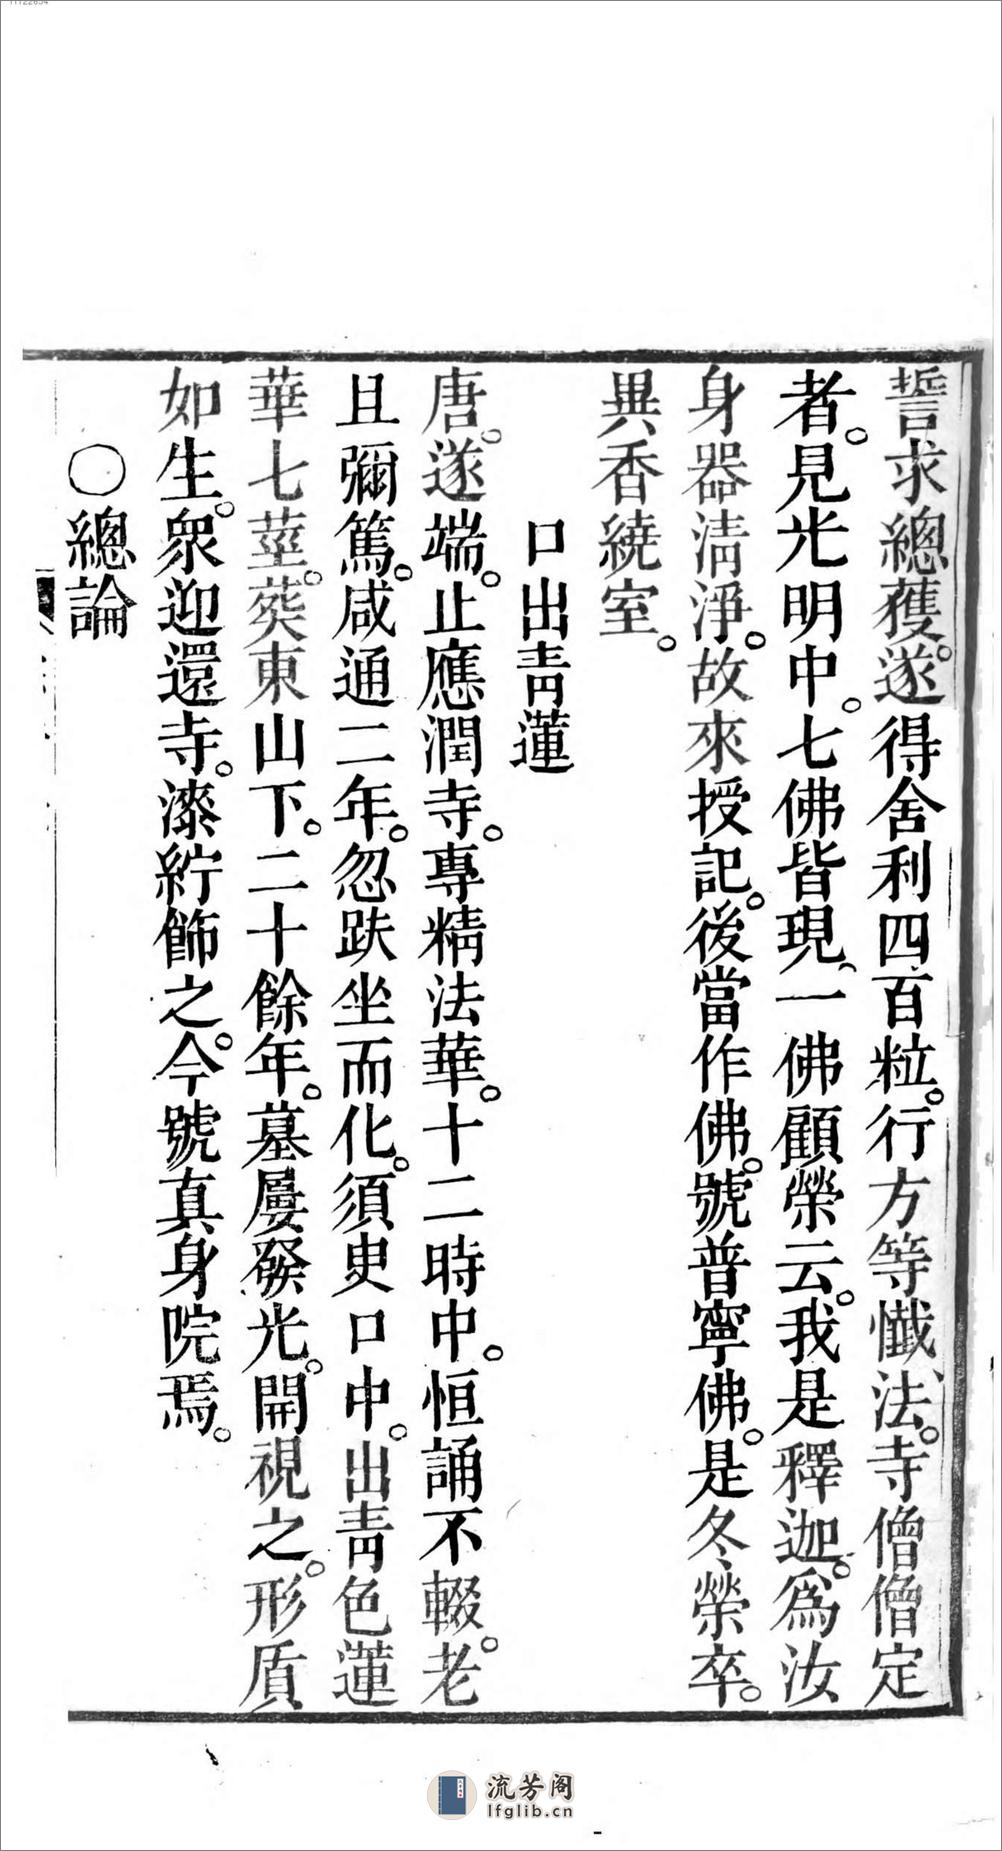 誓求總獲。遂得舍利四百粒。行方等懺法。寺僧僧定
者。見光明中。七佛皆現、一佛顧榮云。我是釋迦。爲汝
身器清淨。故來授記。後當作佛。號普寧佛。是冬榮卒。
異香繞室。
口出青蓮
唐。遂端。止應潤寺。專精法華。十二時中。恒誦不輟。老
且彌篤。咸通二年。忽趺坐而化。須臾口中。出青色蓮
華七莖。葬東山下。二十餘年。墓屢發光。開視之。形質
如生。衆迎還寺。漆紵飾之。今號真身院焉。
○總論
流芳阁
lfglib.cn